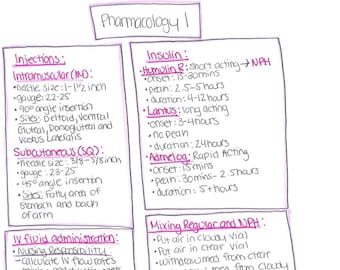 Pharmacology 1
Injections:
Intramuscular (IM):
• needle size: 1-1½ inch
• gauge: 22-25
• 90° angle insertion
• Sites: Deltoid, Ventral
Gluteal, Dorsogluteal and
Vastus Lateralis
Subcutaneous (SQ):
• needle size: 3/8-5/8 inch
• gauge: 23-25
• 45° angle insertion
• Sites: Fatty area of
stomach and back
of arm
IV fluid administration:
• Nursing Responsibility
- calculate IV flow rates
Insulin:
• Humulin R: Short acting → NPH
• onset: 15-30mins
• peak: 2.5-5 hours
• duration: 4-12 hours
• Lantus: long acting
• onset: 3-4 hours
• no peak
• duration: 24 hours
• Admelog: Rapid Acting
• onset: 15 mins
• peak: 30mins-2.5 hours
• duration: 5+ hours
Mixing Regular and NPH:
• Put air in cloudy vial
• Put air in clear vial
• withdraw med from clear